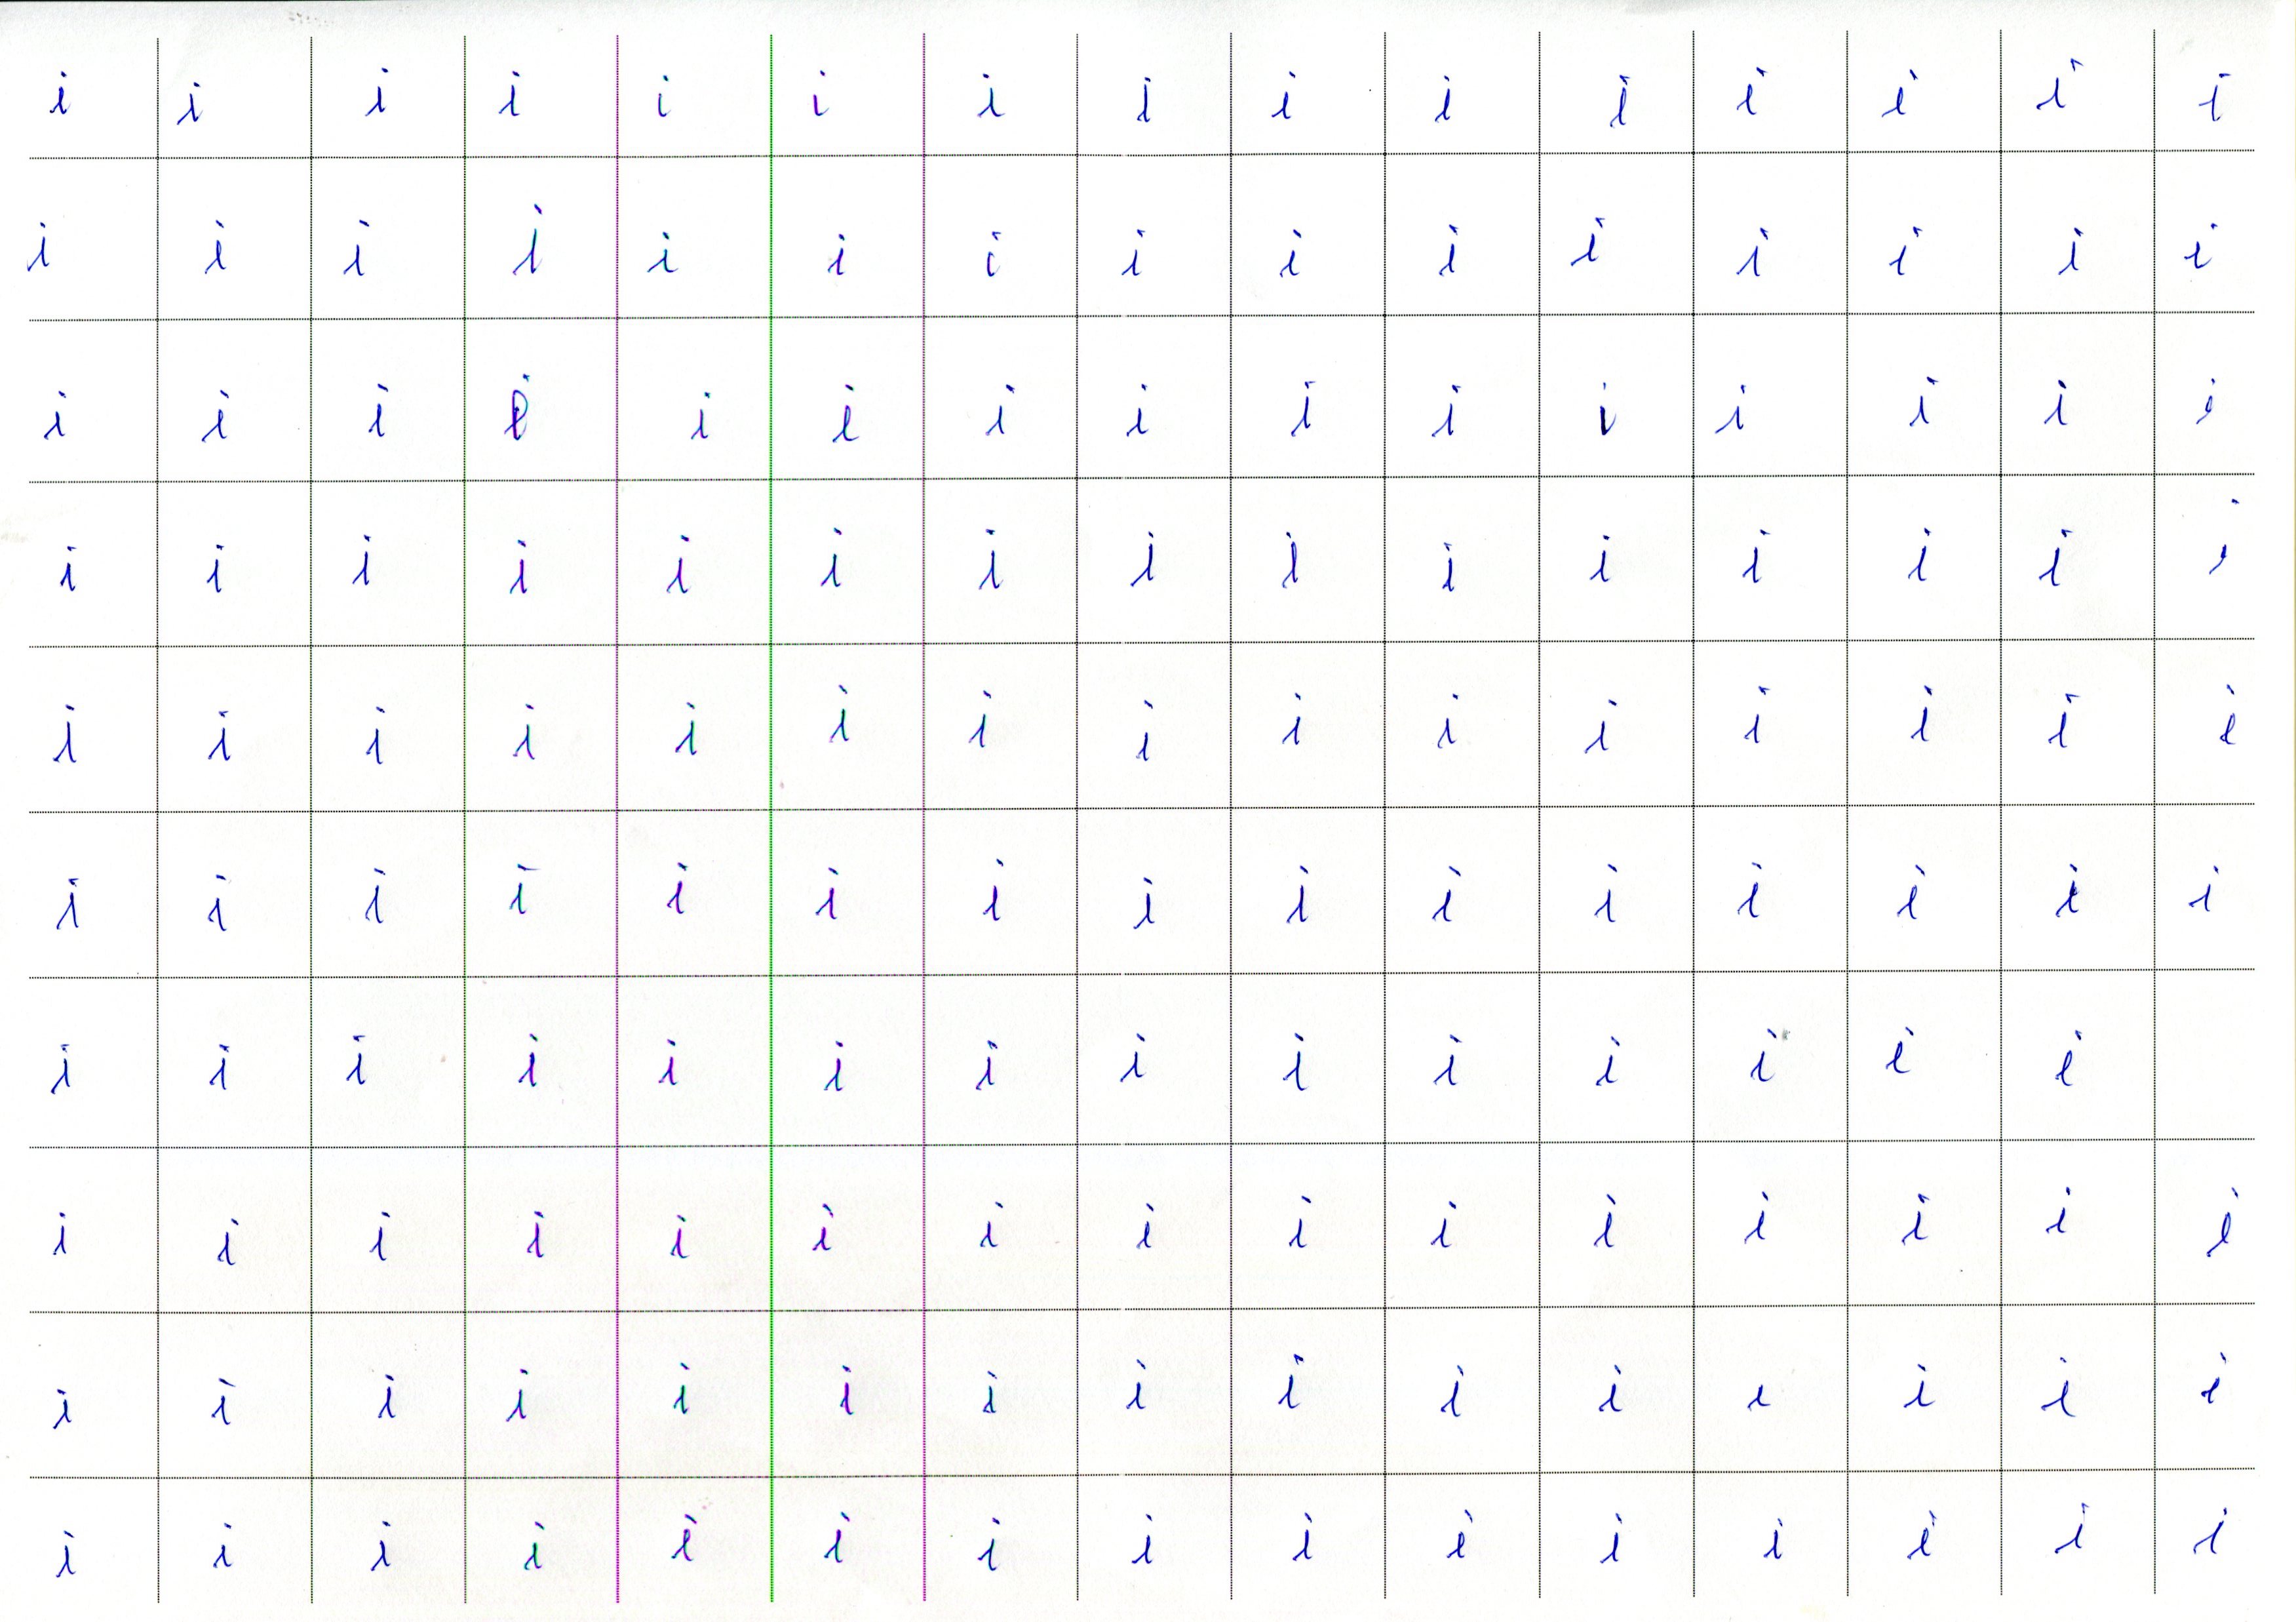 i i i i i i i i i i i i i i i
i i i i i i i i i i i i i i i
i i i i i i i i i i i i i i i
i i i i i i i i i i i i i i i
i i i i i i i i i i i i i i i
i i i i i i i i i i i i i i i
i i i i i i i i i i i i i i
i i i i i i i i i i i i i i i
i i i i i i i i i i i ı i i i
i i i i i i i i i i i i i i i